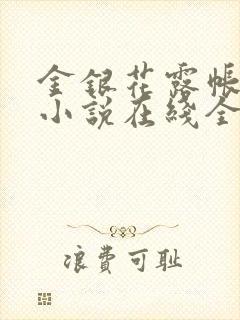 金银花露帐
小说在线全
浪費可耻